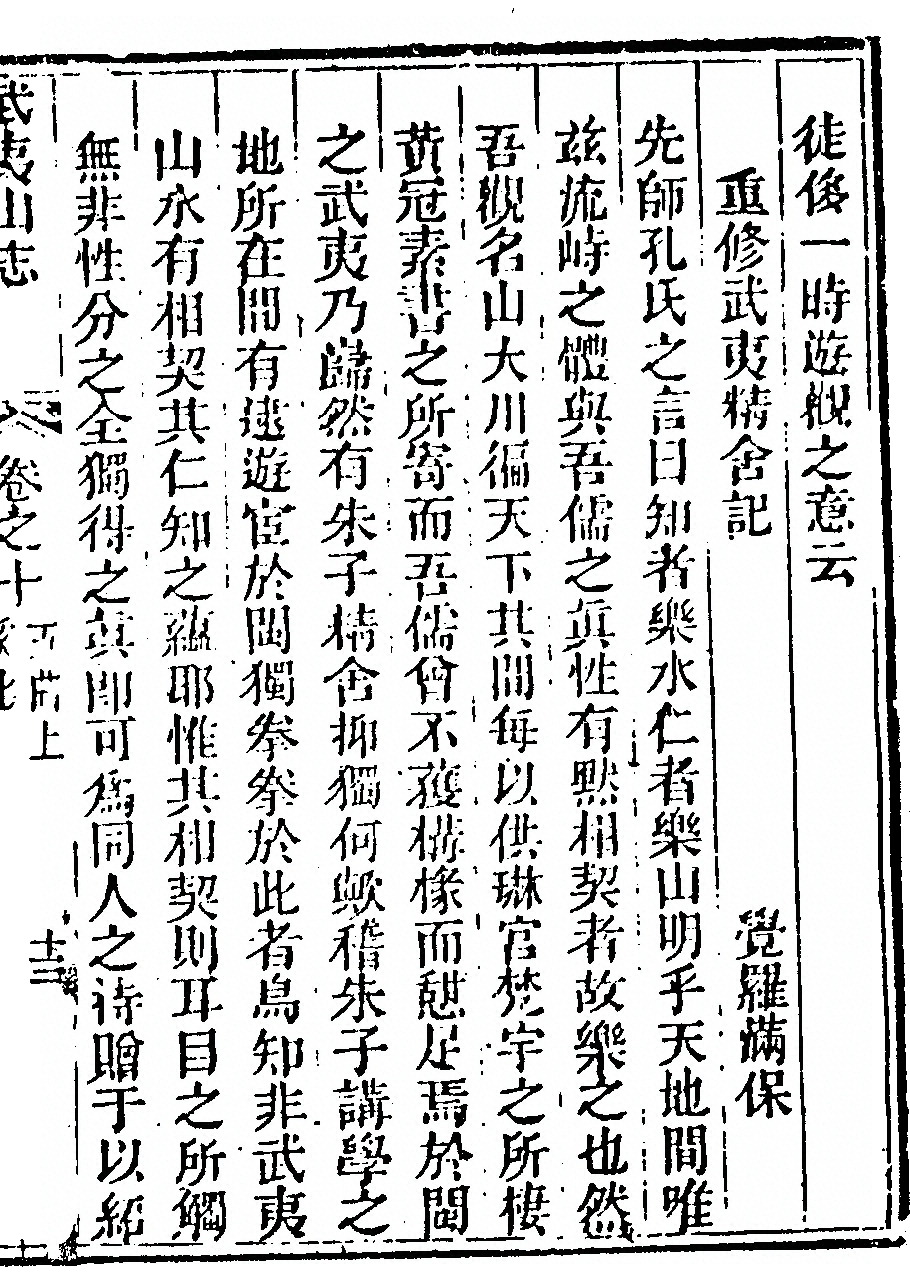 徒侈一時遊觀之意云
重修武夷精舍記 覺羅滿保
先師孔氏之言曰知者樂水仁者樂山明乎天地間唯
茲流峙之體與吾儒之眞性有默相契者故樂之也然
吾觀名山大川徧天下其間每以供琳宮梵宇之所棲
黃冠素書之所寄而吾儒曾不獲構椽而憇足焉於閩
之武夷乃巋然有朱子精舍抑獨何歟稽朱子講學之
地所在間有逺遊宦於閩獨拳拳於此者烏知非武夷
山水有相契其仁知之蘊耶惟其相契則耳目之所觸
無非性分之全獨得之眞卽可爲同人之持贈于以紹
武夷山志 卷之十 五曲上 十三